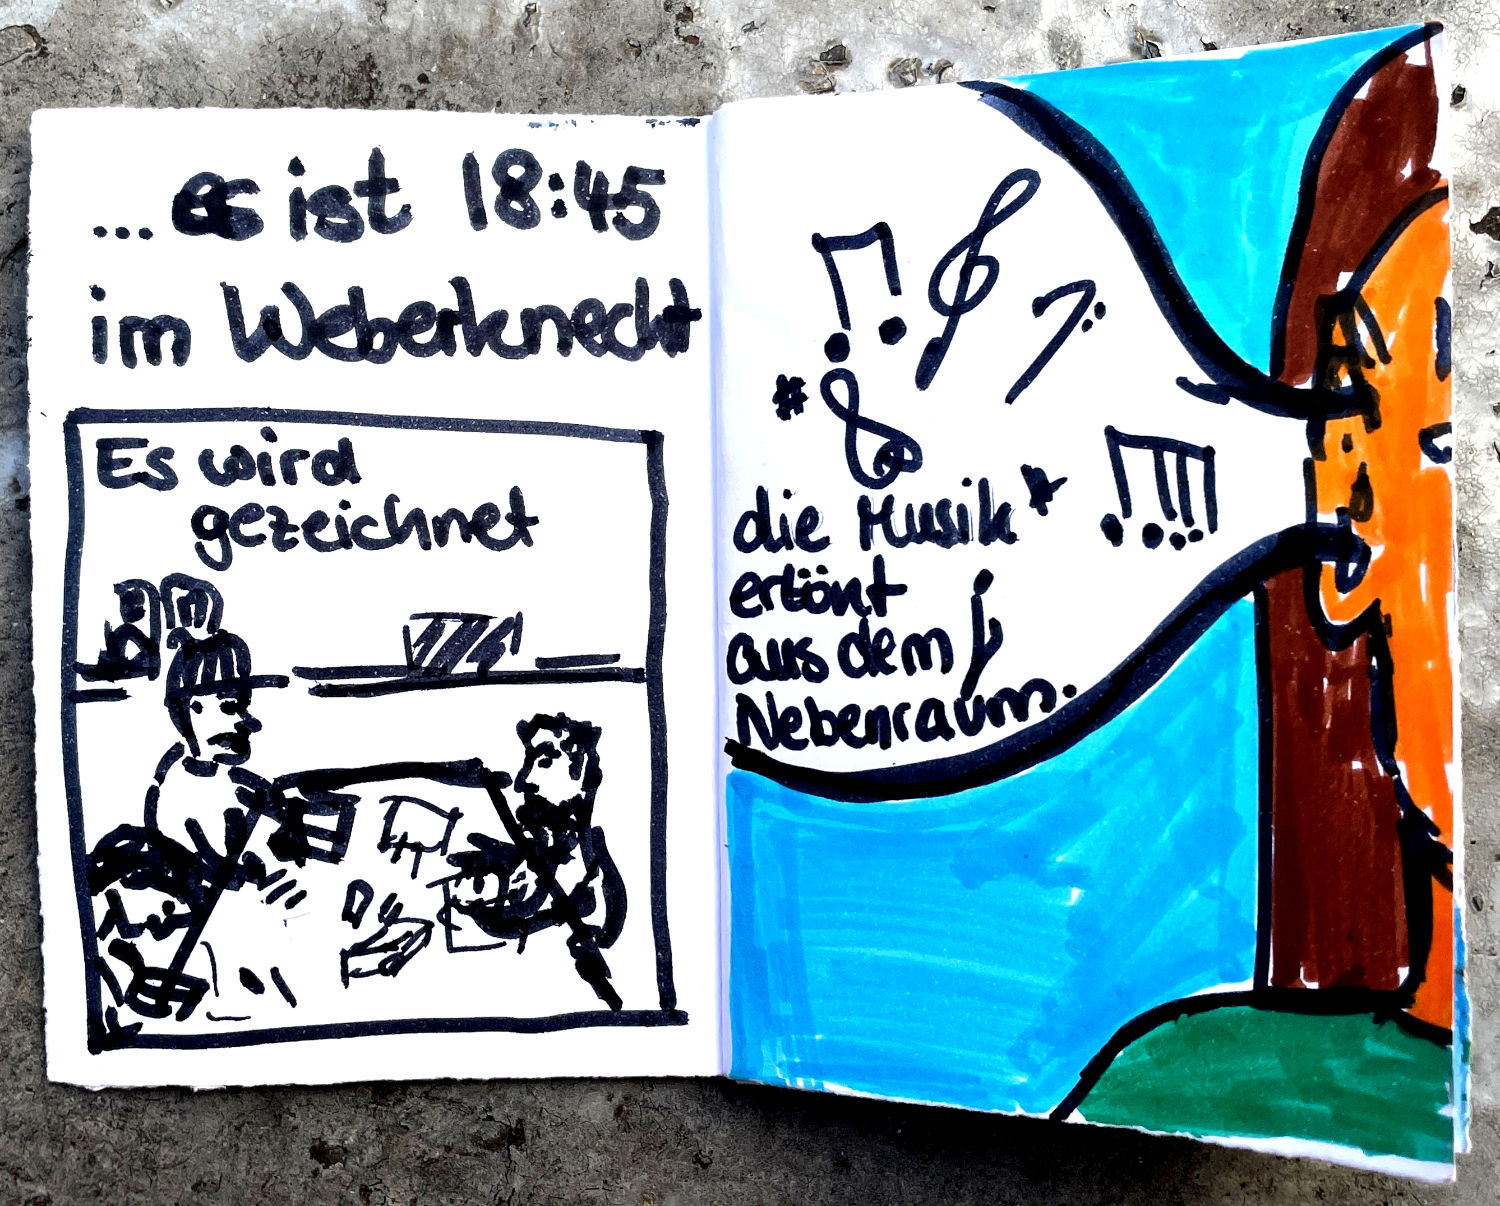 ... es ist 18:45
im Weberknecht
Es wird
gezeichnet
die Musik*
ertönt
aus dem
Nebenraum.